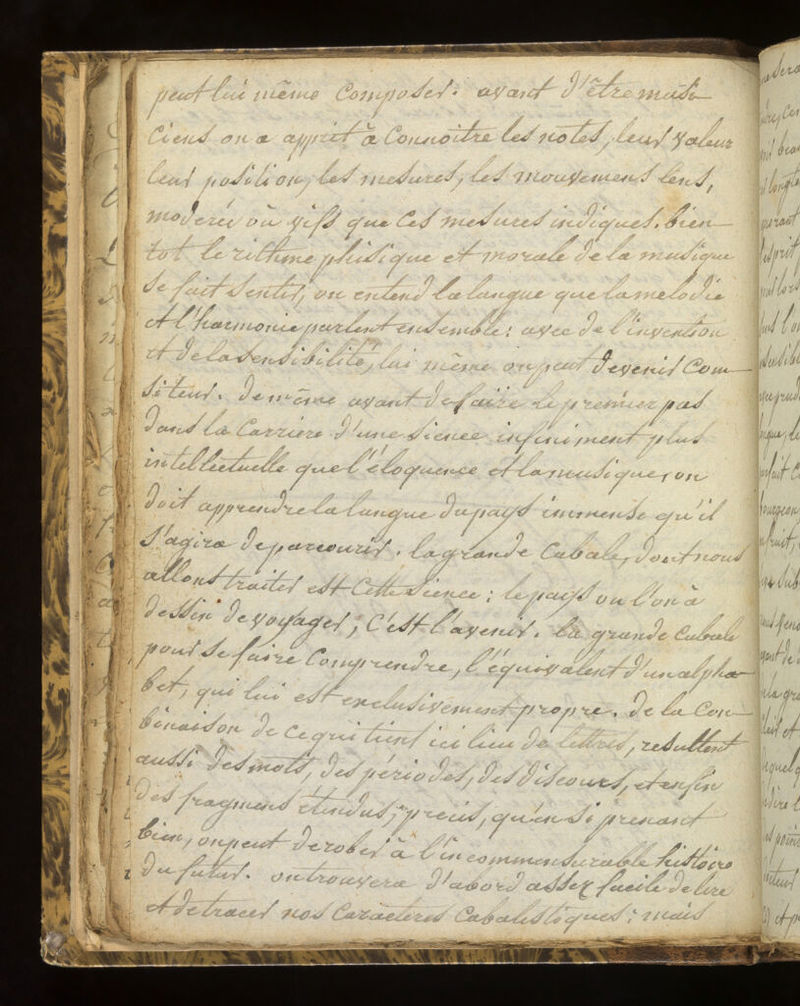 peut lui même Composer. avant d'être musi-
Ciens on a apprit à Connoitre les notes, leur Valeur
leur position, les mesures, les mouvemens lens,
moderés où vifs que Ces mesures indiques. bien-
tot le rithme phisique et morale de la musique
Se fait Sentir, on entend la langue que la melodie
et l'harmonie parlent ensemble: avec de l'invention
et de la Sensibilité, lui même on peut devenir Com-
Siteur. de même avant de faire le premier pas
dans la Carriere d'une Sience infiniment plus
intellectuelle que l'éloquence et la musique, on
doit apprendre la langue du pays immense qu'il
S'agira de parcourir. la grande Cabale, dont nous
allons traiter est Cette Sience: le pays ou l'on a
dessin de voyager; C'est l'avenir. la grande Cabale
pour Se faire Comprendre, l'équivalent d'un alpha-
bet, qui lui est exclusivement propre. de la Com-
binaison de Ce qui tient ici lieu de lettres, resultent
aussi des mots, des périodes, des discours, et enfin
des fragmens étendus, précis, qu'en Si prenant
bien, on peut derober à l'incommensurable histoire
du futur. on trouvera d'abord assez facile de lire
et de tracer nos Caracteres Cabalistiques: mais